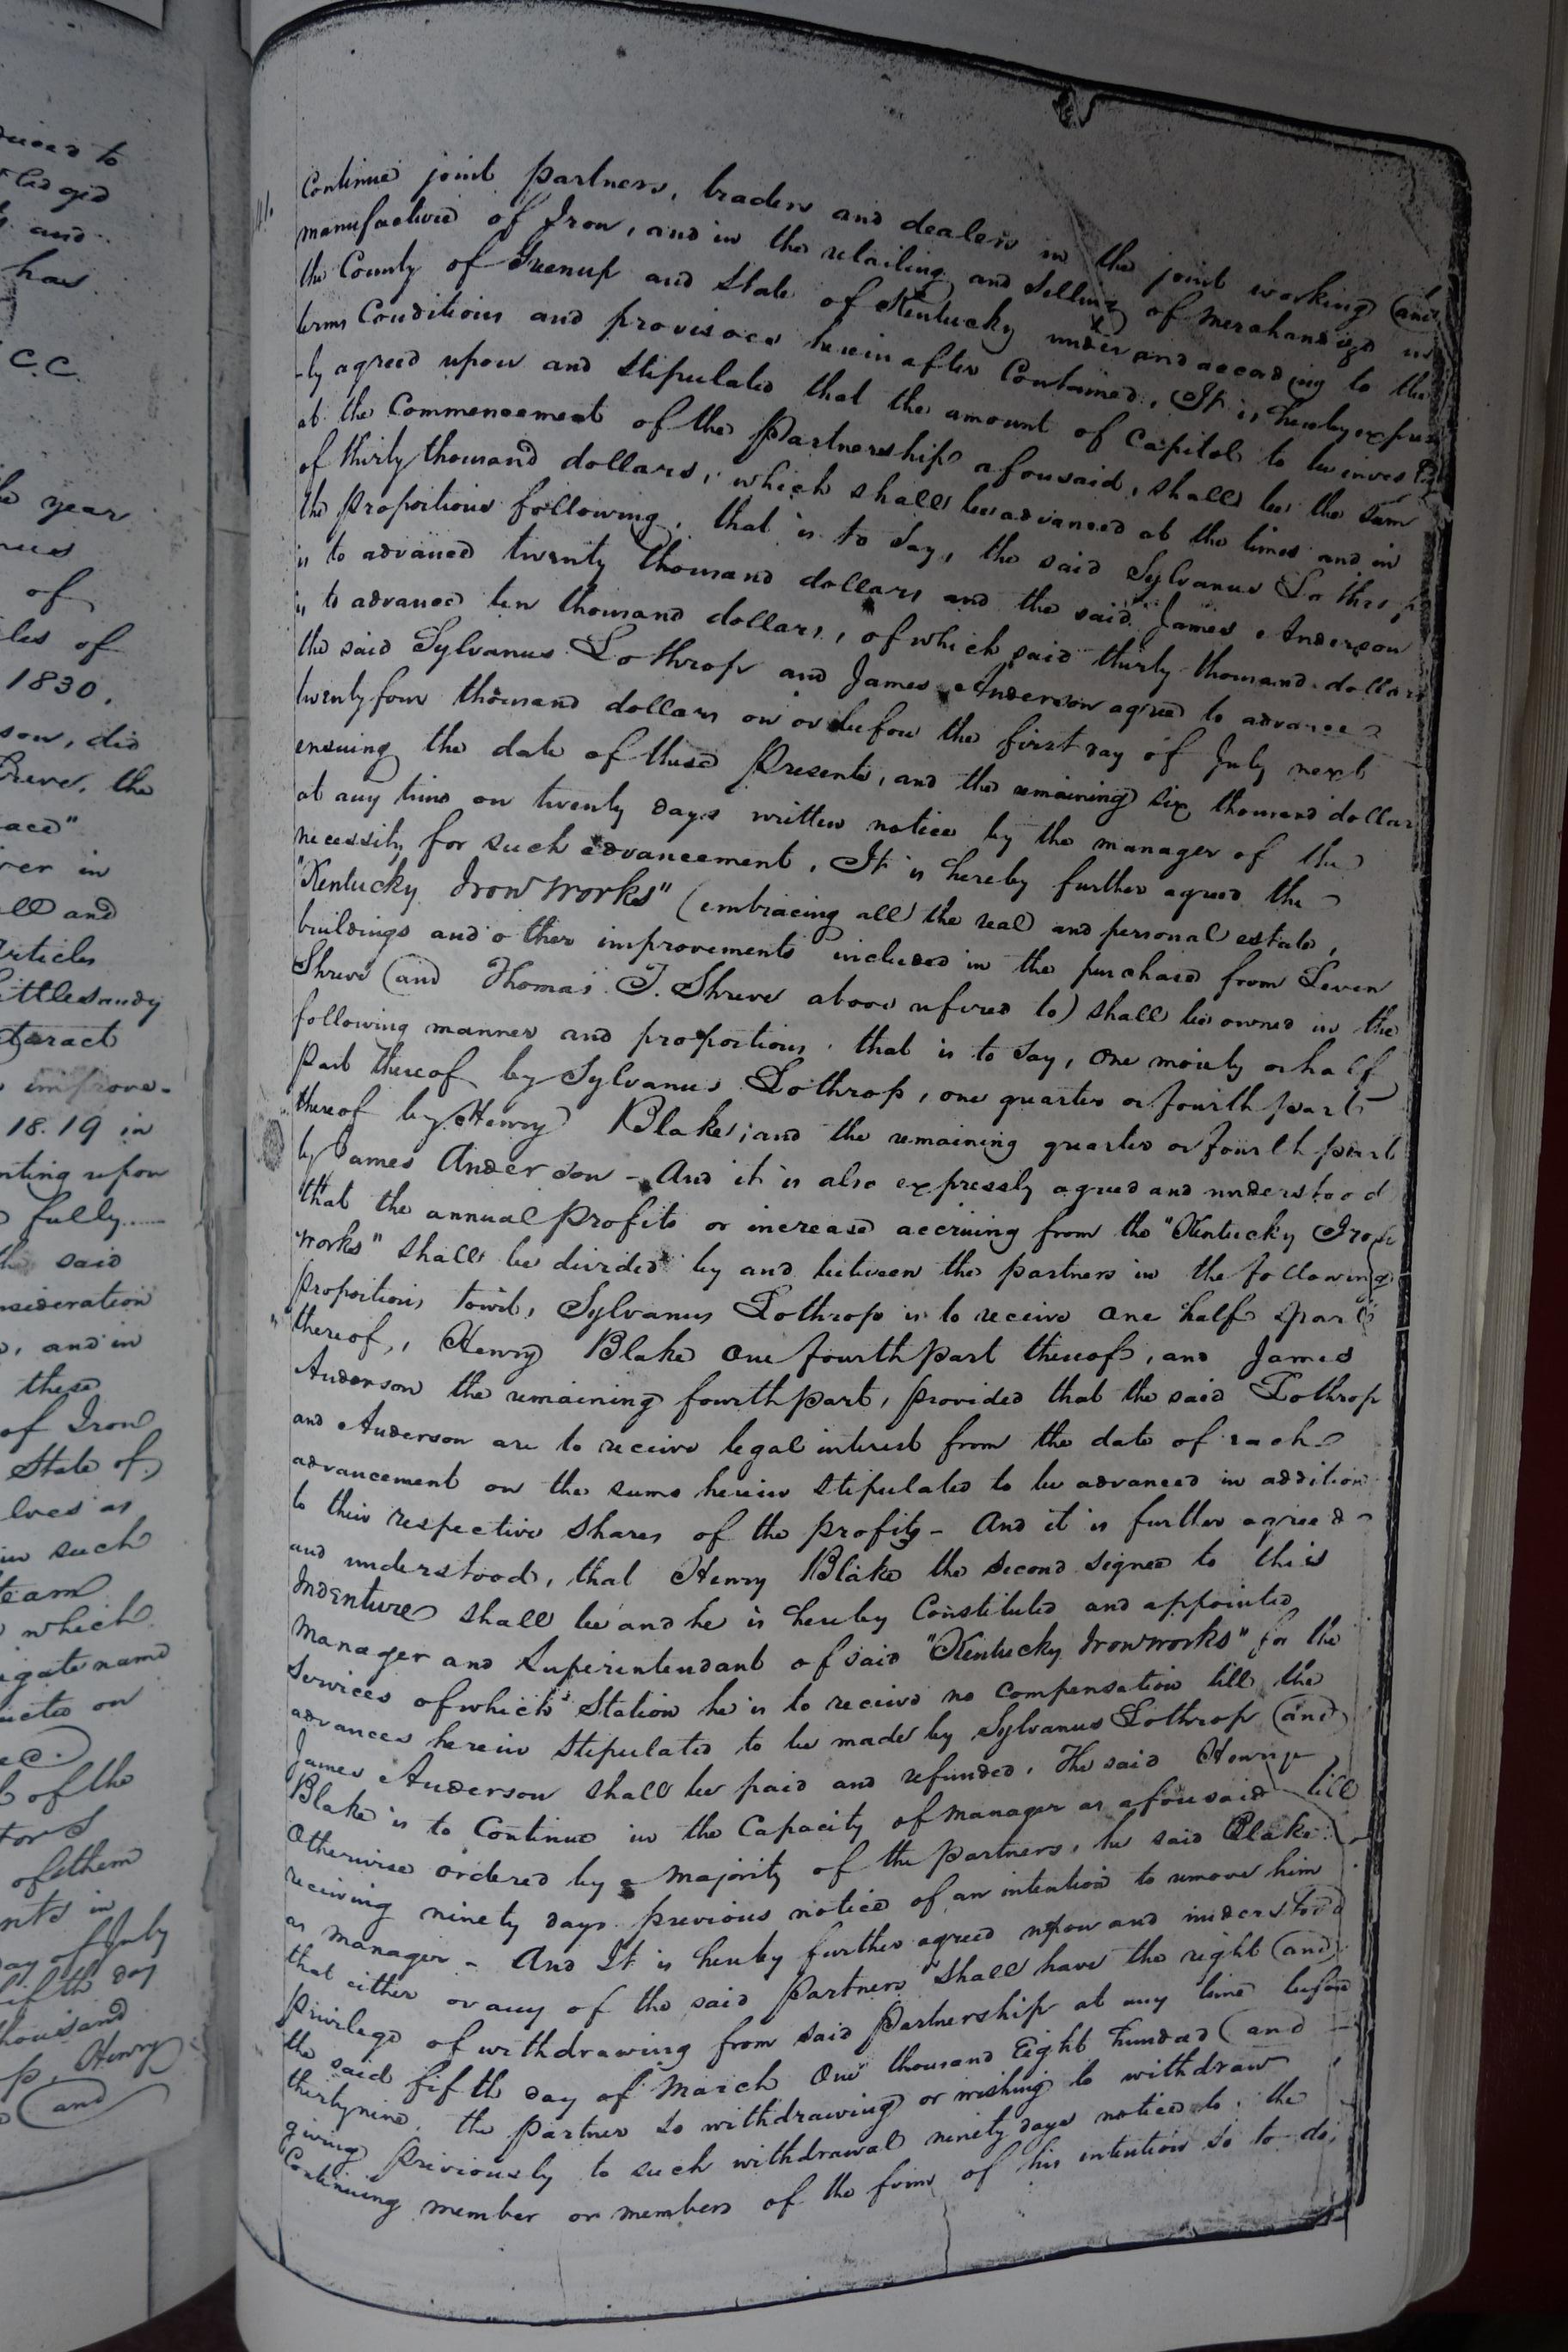 duced to
ledged
and
has
C.C.
year
of
les of
1830.
son, did
Shreve, the
ace"
ver in
all and
articles
Little Sandy
tract
improve-
18.19 in
nting upon
fully
the said
nsideration
, and in
these
of Iron
State of
lves as
in such
team
which
gate name
ucted on
of the
tors
of them
nts in
day of July
fifth day
thousand
p, Henry
(and
Continued joint partners, traders and dealers in the joint working (and
manufactured of Iron, and in the retailing and selling of merchandize in
the County of Greenup and State of Kentucky under and according to the
terms Conditions and provisoes herein after Contained. It is hereby expres
-ly agreed upon and stipulated that the amount of Capitol to be invested
at the Commencement of the Partnership afousaid, shall be the sum
of thirty thousand dollars, which shall be advanced at the times and in
the proportions following, that is to say, the said Sylvanus Lothrop
is to advance twenty thousand dollars and the said James Anderson
is to advance ten thousand dollars, of which said thirty thousand dollars
the said Sylvanus Lothrop and James Anderson agreed to advance
twenty four thousand dollars on or before the first day of July next
ensuing the date of these Presents, and the remaining six thousand dollars
at any time on twenty days written notice by the manager of the
necessity for such advancement. It is hereby further agreed the
"Kentucky Iron Works" (embracing all the real and personal estate,
buildings and other improvements included in the purchase from Leven
Shreve (and Thomas T. Shreve above refered to) shall be owned in the
following manner and proportions. that is to say, One moiety or half
part thereof by Sylvanus Lothrop, one quarter or fourth part
thereof by Henry Blake; and the remaining quarter or fourth part
by James Anderson - And it is also expressly agreed and understood
that the annual profits or increase accruing from the "Kentucky Iron
Works" shall be divided by and between the partners in the following
proportions towit, Sylvanus Lothrop is to receive One half part
thereof, Henry Blake One fourth part thereof, and James
Anderson the remaining fourth part, provided that the said Lothrop
and Anderson are to receive legal interest from the date of each
advancement on the sums herein stipulated to be advanced in addition
to their respective shares of the profits - And it is further agreed
and understood, that Henry Blake the second signed to this
Indenture shall be and he is hereby Constituted and appointed
Manager and Superintendant of said "Kentucky Iron works" for the
services of which Station he is to receive no compensation till the
advances herein stipulated to be made by Sylvanus Lothrop (and
James Anderson shall be paid and refunded. The said Henry
Blake is to Continue in the Capacity of manager as afousaid till
Otherwise ordered by a majority of the partners, he said Blake
receiving ninety days previous notice of an intention to remove him
as manager - And It is hereby further agreed upon and understood
that either or any of the said partners shall have the right (and
privilege of withdrawing from said Partnership at any time before
the said fifth day of March One thousand Eight hundred (and
thirtynine, the partner so withdrawing or wishing to withdraw
giving Previously to such withdrawal ninety days notice to the
Continuing member or members of the firm of his intention so to do,